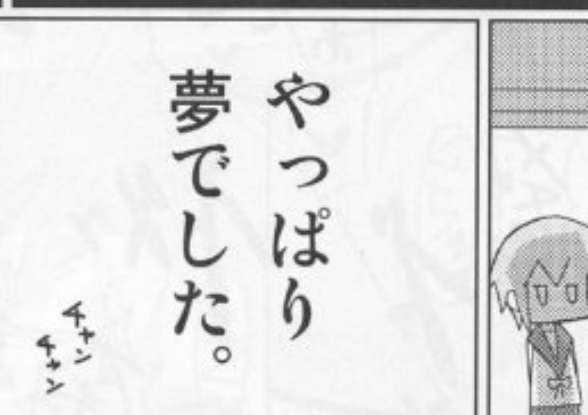 やっぱり
夢でした。
チャン
チャン